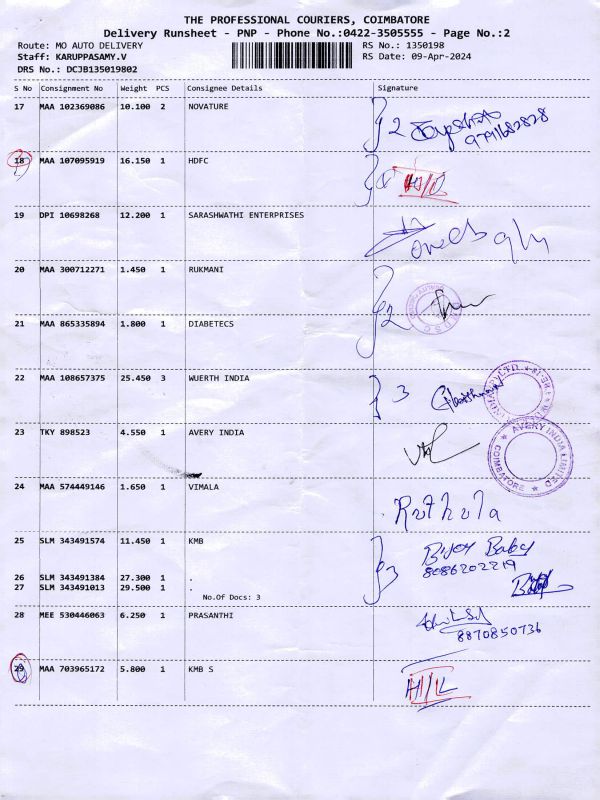 THE PROFESSIONAL COURIERS, COIMBATORE
Delivery Runsheet - PNP - Phone No.:0422-3505555 - Page No.:2
Route: MO AUTO DELIVERY
RS No.: 1350198
Staff: KARUPPASAMY.V
RS Date: 09-Apr-2024
DRS No.: DCJB135019802
S No Consignment No Weight PCS Consignee Details Signature
17 MAA 102369086 10.100 2 NOVATURE
2
9791682828
18 MAA 107095919 16.150 1 HDFC
19 DPI 10698268 12.200 1 SARASHWATHI ENTERPRISES
20 MAA 300712271 1.450 1 RUKMANI
2
21 MAA 865335894 1.800 1 DIABETECS
22 MAA 108657375 25.450 3 WUERTH INDIA
3
23 TKY 898523 4.550 1 AVERY INDIA
AVERY INDIA LIMITED
COIMBATORE
24 MAA 574449146 1.650 1 VIMALA
Ruthula
25 SLM 343491574 11.450 1 KMB
3
Bijoy Baby
8086202219
26 SLM 343491384 27.300 1 .
27 SLM 343491013 29.500 1 .
No.Of Docs: 3
28 MEE 530446063 6.250 1 PRASANTHI
8870850736
29 MAA 703965172 5.800 1 KMB S